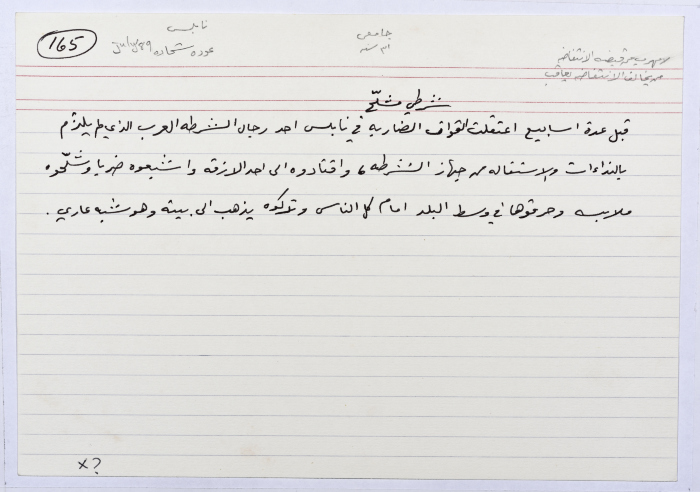 165
نابلس
عوده شحاده July/89
جامعي
لا مهرب من قبضة الانتفاضة
من يخالف الانتفاضه يعاقب
شرطي مشلّح
قبل عدة اسابيع اعتقلت القوات الضاربه في نابلس احد رجال الشرطه العرب الذي لم يلتزم
بالنداءات والاستقاله من جهاز الشرطه، واقتادوه الى احد الازقه واشبعوه ضربا وشلّحوه
ملابسه وحرقوها في وسط البلد امام كل الناس وتركوه يذهب الى بيته وهو شبه عاري.
x?